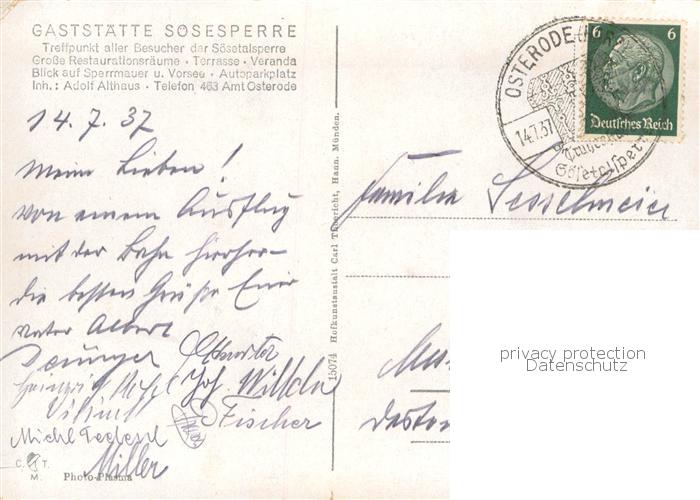 GASTSTÄTTE SÖSESPERRE
Treffpunkt aller Besucher der Sösetalsperre
Große Restaurationsräume · Terrasse · Veranda
Blick auf Sperrmauer u. Vorsee · Autoparkplatz
Inh.: Adolf Althaus · Telefon 463 Amt Osterode
14.7.37
Meine Lieben!
Von einem Ausflug
mit der Bahn hierher
die besten Grüße Euer
Vater Albert
Joh. Wilkeln
Fischer
Michl
Miller
C. T.
M.
Photo-Plasma
15074 Hofkunstanstalt Carl Thoericht, Hann. Münden.
OSTERODE (HARZ)
14.7.37
Sösetalsperre
6 6
Deutsches Reich
Familie Sesselmeier
privacy protection
Datenschutz